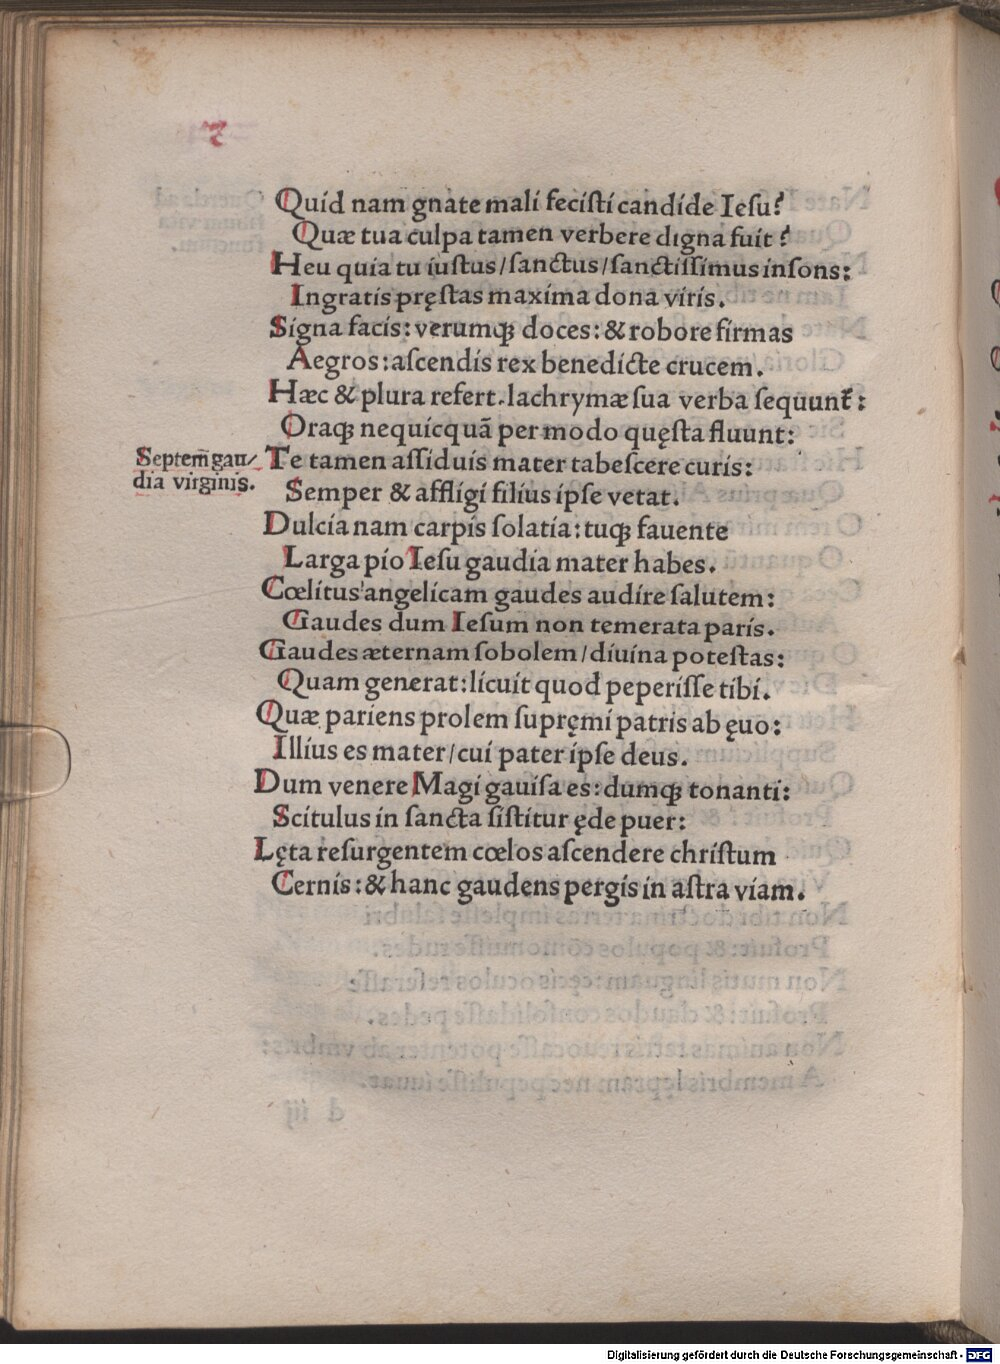 Quid nam gnate mali feciſti candide Ieſu?
Quæ tua culpa tamen verbere digna fuit?
Heu quia tu iuſtus/ſanctus/ſanctiſſimus inſons:
Ingratis pręſtas maxima dona viris.
Signa facis: verumqꝫ doces: & robore firmas
Aegros: aſcendis rex benedicte crucem.
Hæc & plura refert. lachrymæ ſua verba ſequunt᷑:
Oraqꝫ nequicquã per modo quęſta fluunt:
Septem̄ gau/
dia virginis.
Te tamen aſſiduis mater tabeſcere curis:
Semper & affligi filius ipſe vetat.
Dulcia nam carpis ſolatia: tuqꝫ fauente
Larga pio Ieſu gaudia mater habes.
Cœlitus angelicam gaudes audire ſalutem:
Gaudes dum Ieſum non temerata paris.
Gaudes æternam ſobolem/diuina poteſtas:
Quam generat: licuit quod peperiſſe tibi.
Quæ pariens prolem ſupręmi patris ab ęuo:
Illius es mater/cui pater ipſe deus.
Dum venere Magi gauiſa es: dumqꝫ tonanti:
Scitulus in ſancta ſiſtitur ęde puer:
Lęta reſurgentem cœlos aſcendere chriſtum
Cernis: & hanc gaudens pergis in aſtra viam.
Digitalisierung gefördert durch die Deutsche Forschungsgemeinschaft - DFG